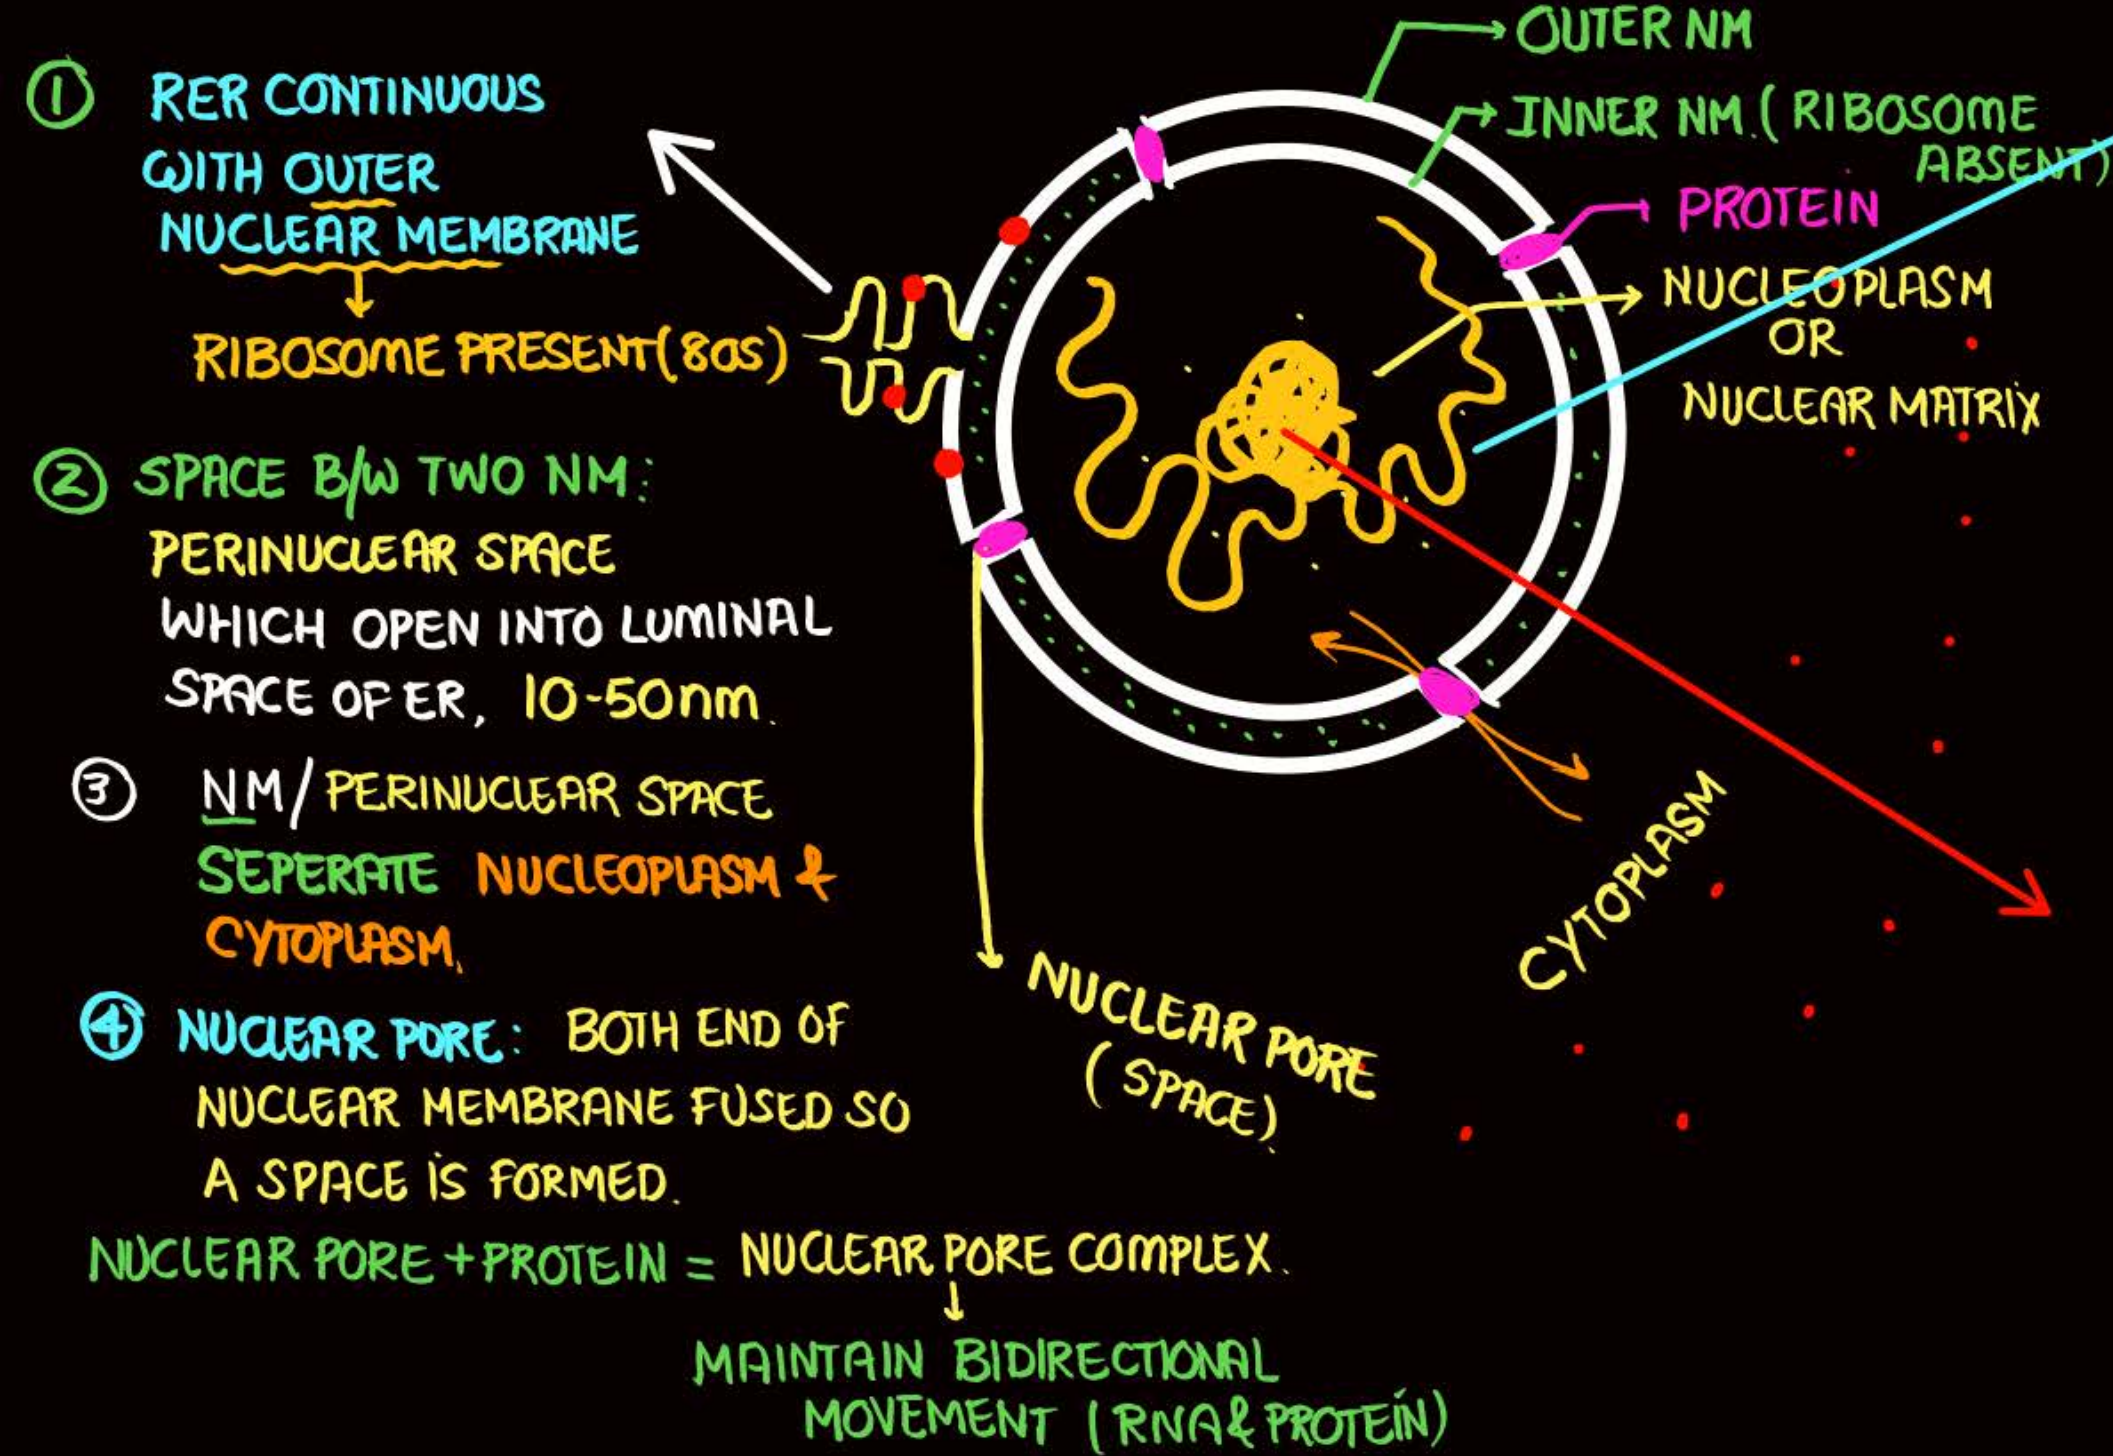 ① RER CONTINUOUS
WITH OUTER
NUCLEAR MEMBRANE
RIBOSOME PRESENT (80S)
② SPACE B/W TWO NM:
PERINUCLEAR SPACE
WHICH OPEN INTO LUMINAL
SPACE OF ER, 10-50nm.
③ NM/PERINUCLEAR SPACE
SEPERATE NUCLEOPLASM &
CYTOPLASM.
④ NUCLEAR PORE: BOTH END OF
NUCLEAR MEMBRANE FUSED SO
A SPACE IS FORMED.
NUCLEAR PORE + PROTEIN = NUCLEAR PORE COMPLEX.
MAINTAIN BIDIRECTIONAL
MOVEMENT (RNA & PROTEIN)
OUTER NM
INNER NM. (RIBOSOME
ABSENT)
PROTEIN
NUCLEOPLASM
OR
NUCLEAR MATRIX
CYTOPLASM
NUCLEAR PORE
(SPACE).